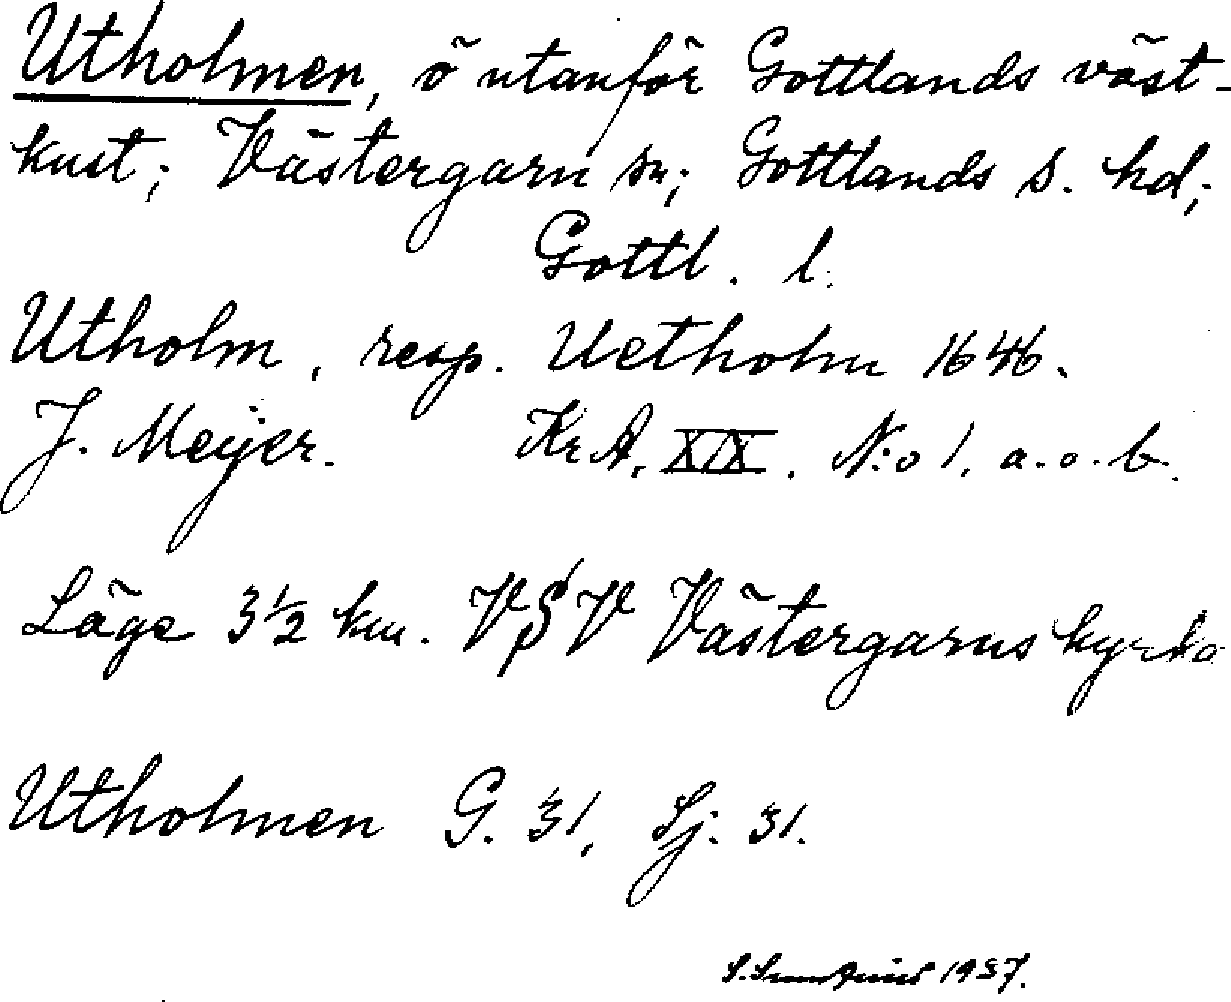 Utholmen, ö utanför Gottlands väst-
kust; Västergarn sn; Gottlands s. hd;
Gottl. l.
Utholm, resp. Uetholm 1646.
J. Meijer. KrA, XIX. N:o 1. a.o.b.
Läge 3 1/2 km. VSV Västergarns kyrka
Utholmen G. 31, Sj. 31.
1937.